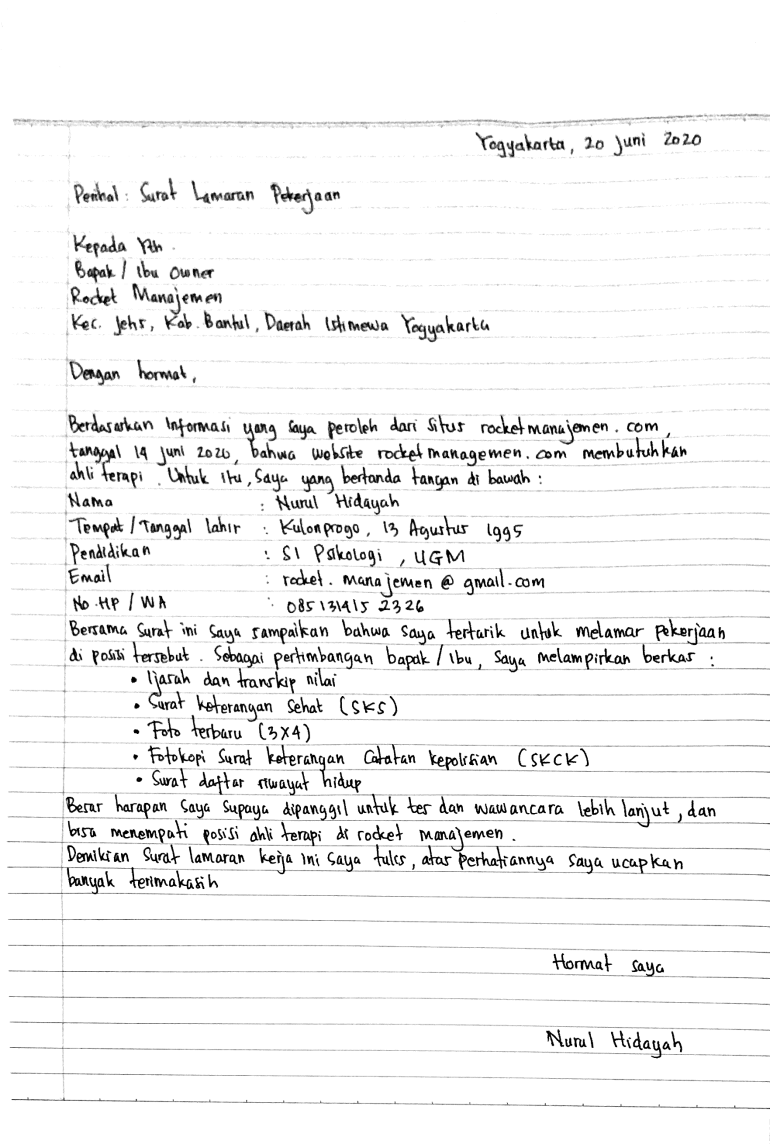 Yogyakarta, 20 Juni 2020
Perihal : Surat Lamaran Pekerjaan
Kepada Yth.
Bapak / Ibu Owner
Rocket Manajemen
Kec. Jehs, Kab. Bantul, Daerah Istimewa Yogyakarta
Dengan hormat,
Berdasarkan Informasi yang Saya peroleh dari Situs rocketmanajemen.com,
tanggal 14 Juni 2020, bahwa website rocketmanagemen.com membutuhkan
ahli terapi. Untuk itu, Saya yang bertanda tangan di bawah :
Nama : Nurul Hidayah
Tempat / Tanggal lahir : Kulonprogo, 13 Agustus 1995
Pendidikan : S1 Psikologi, UGM
Email : rocket.manajemen@gmail.com
No.HP / WA : 085131415 2326
Bersama Surat ini Saya sampaikan bahwa Saya tertarik untuk melamar Pekerjaan
di posisi tersebut. Sebagai pertimbangan bapak / Ibu, Saya melampirkan berkas :
• Ijasah dan transkip nilai
• Surat keterangan Sehat (SKS)
• Foto terbaru (3x4)
• Fotokopi Surat keterangan Catatan kepolisian (SKCK)
• Surat daftar riwayat hidup
Besar harapan Saya Supaya dipanggil untuk tes dan wawancara lebih lanjut, dan
bisa menempati posisi ahli terapi di rocket manajemen.
Demikian Surat lamaran kerja ini Saya tulis, atas perhatiannya Saya ucapkan
banyak terimakasih
Hormat saya
Nurul Hidayah